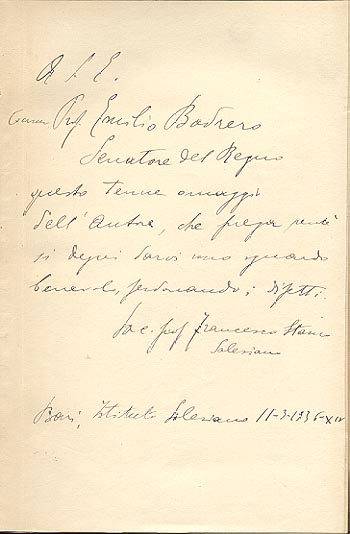 A S. E.
Prof. Emilio Bodrero
Senatore del Regno
questo tenue omaggio
dell'Autore, che prega perchè
si degni darvi uno sguardo
benevolo, perdonando i difetti.
Sac. prof. Francesco
Salesiano
Bari, Istituto Salesiano 11-3-1936-XIV